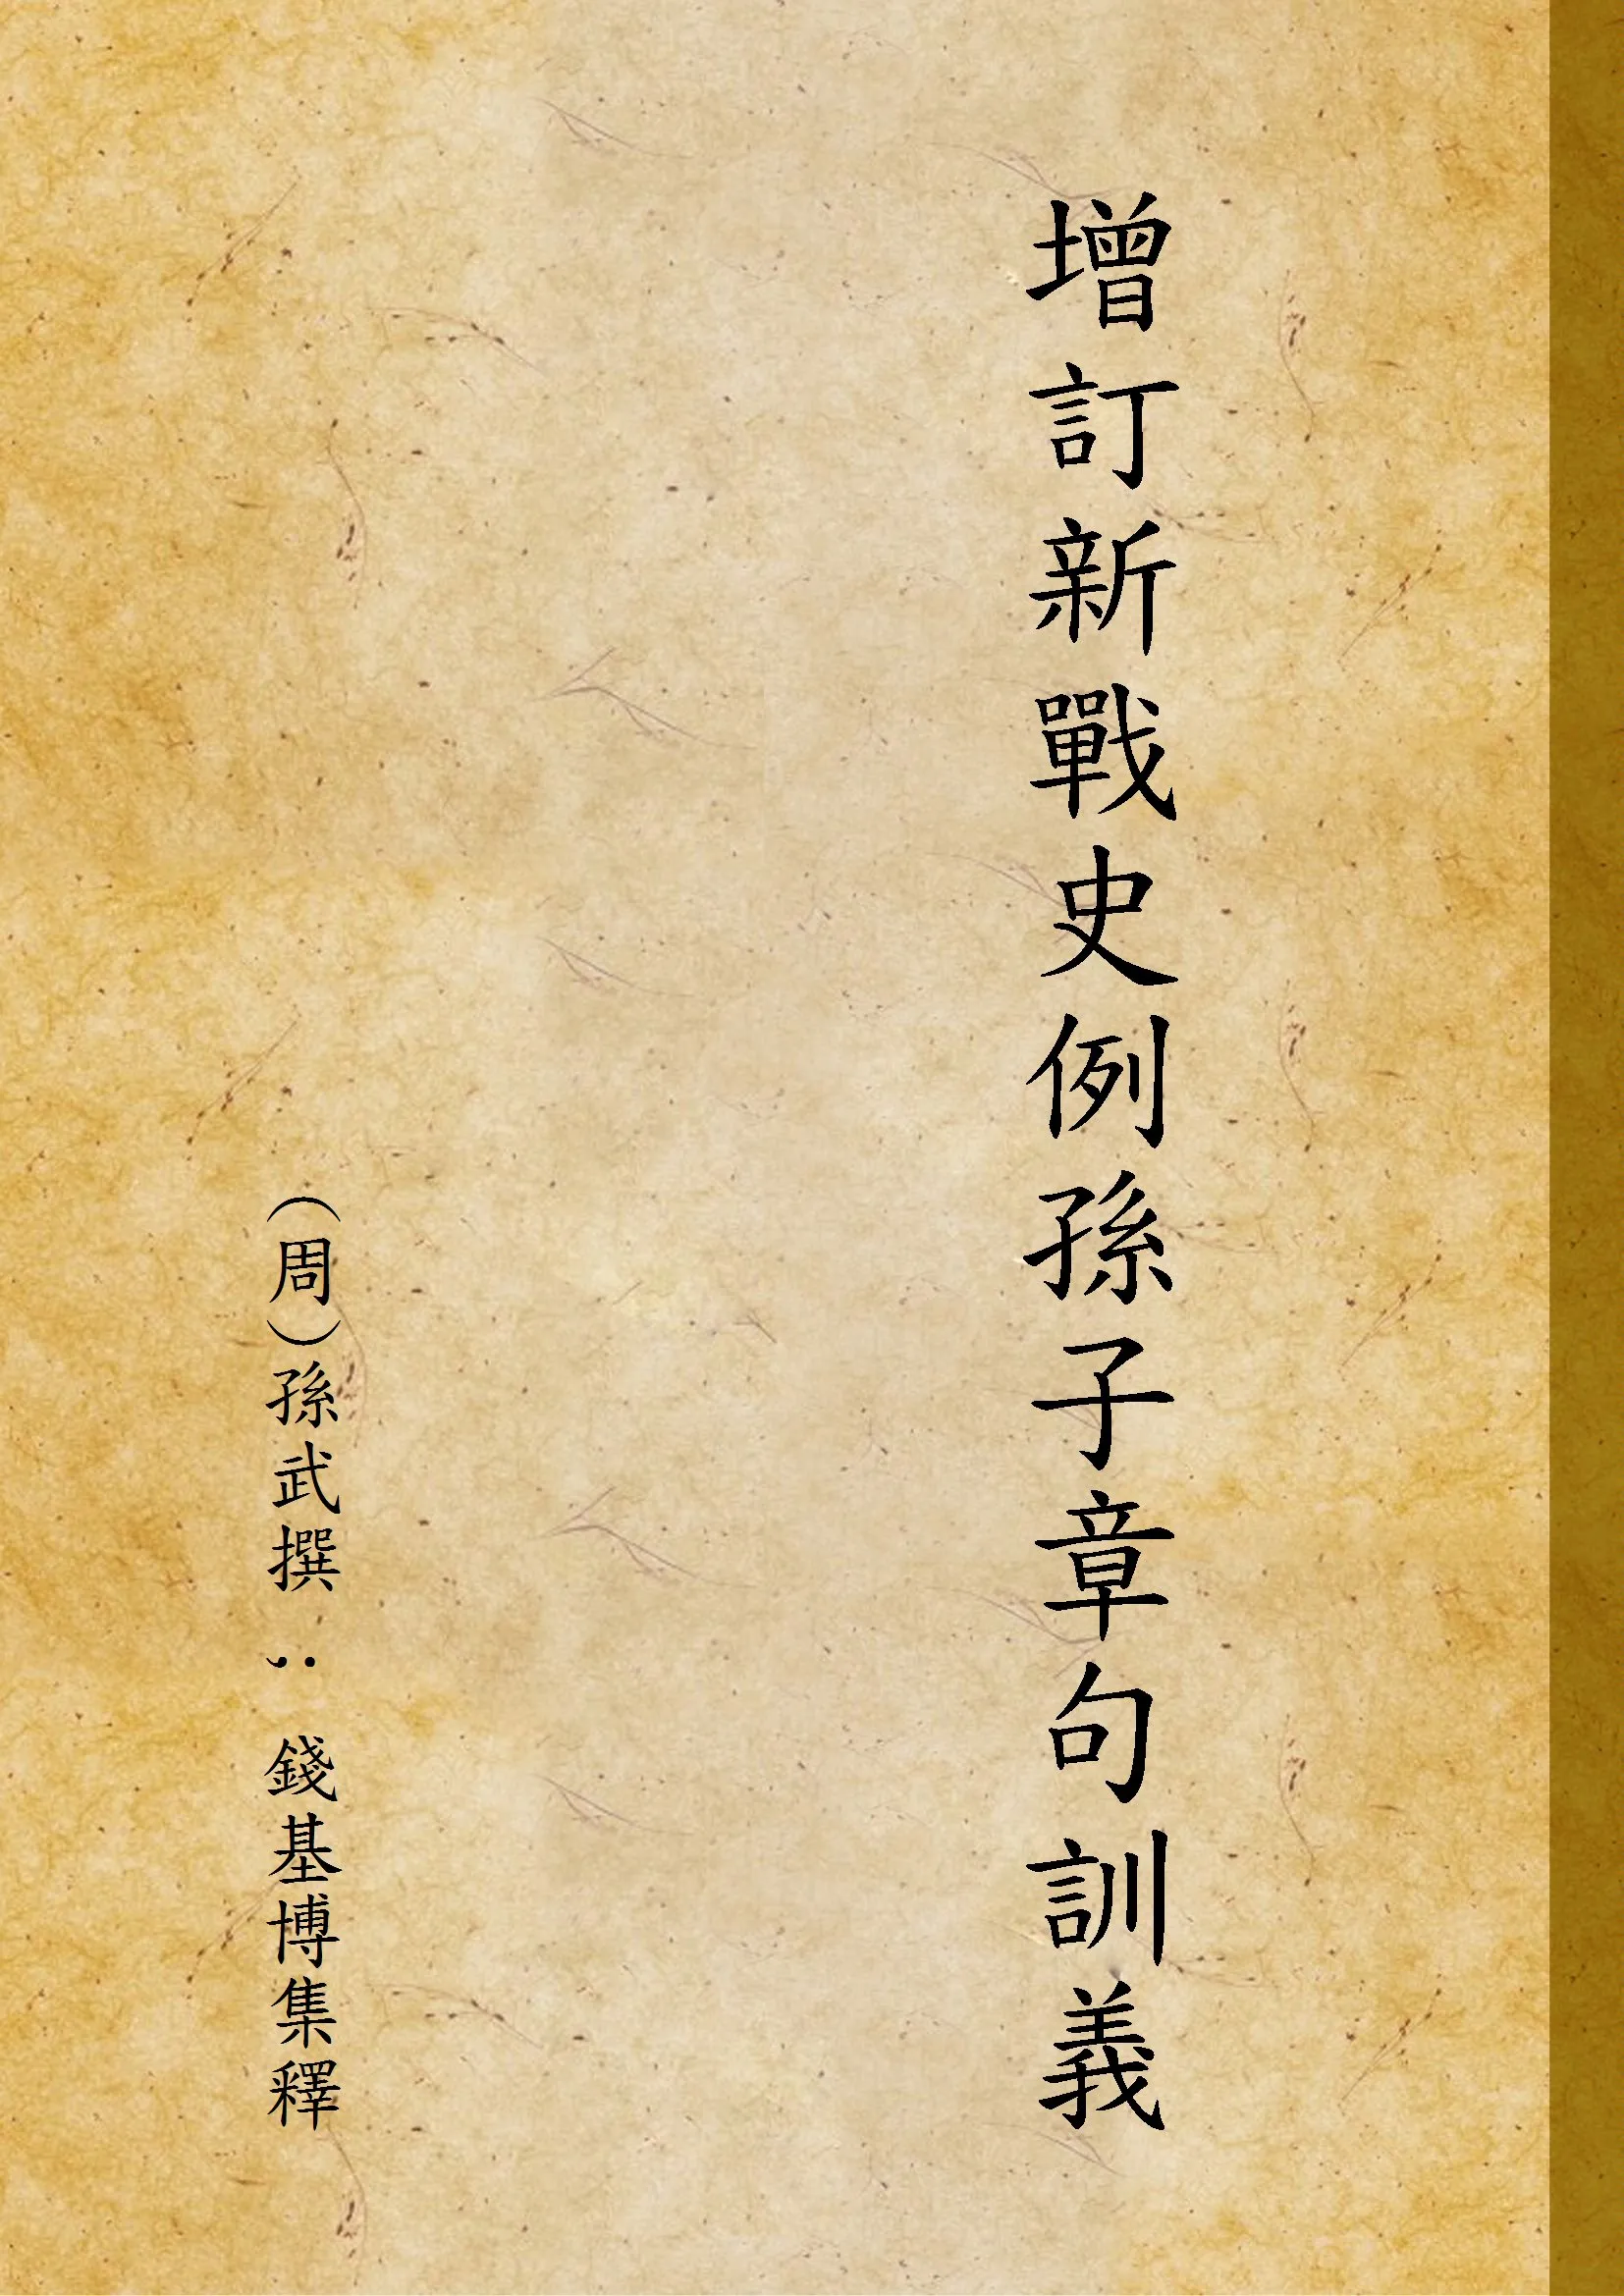 增訂新戰史例孫子章句訓義
（周）孫武撰 ； 錢基博集釋